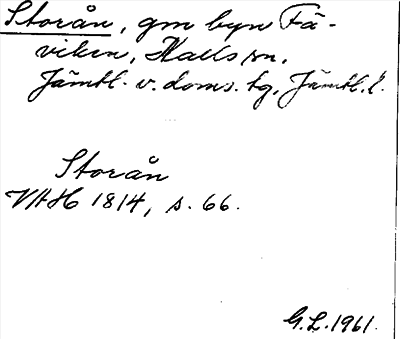 Storån, gm byn Få-
viken, Kalls sn,
Jämtl. v. doms. tg, Jämtl. l.
Storån
VAH 1814, s. 66.
G.L. 1961.